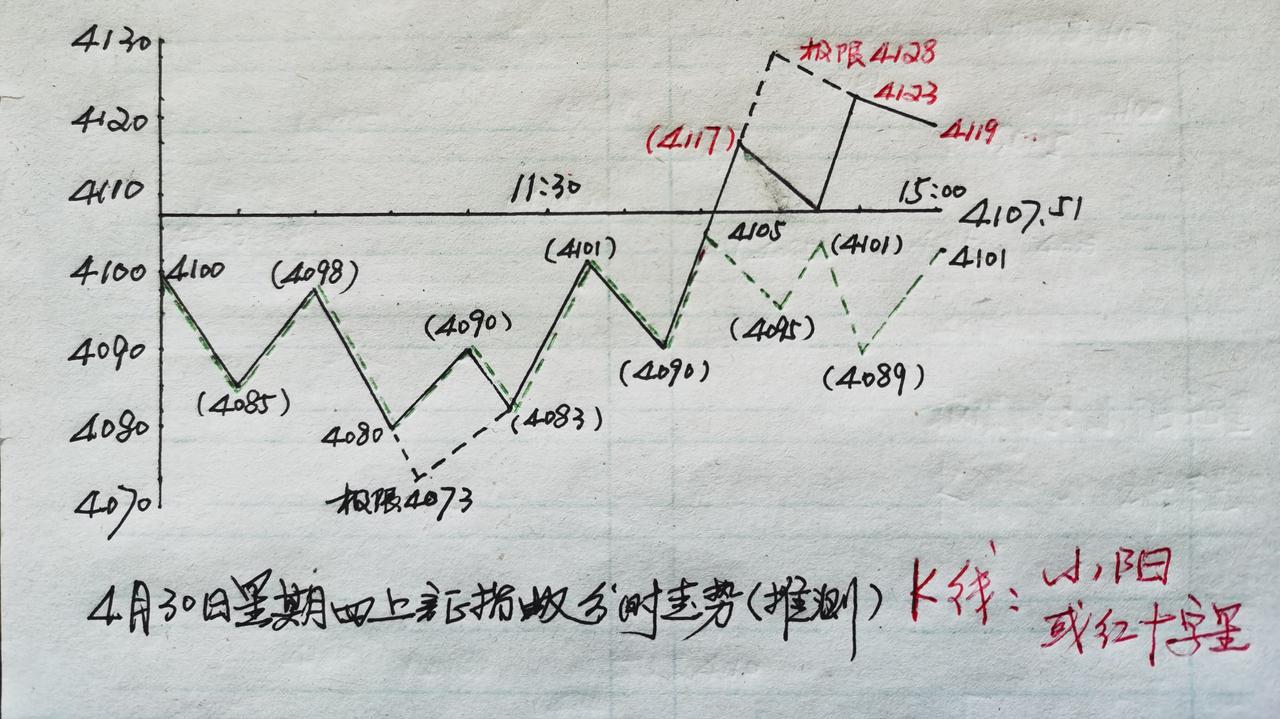 4130
极限4128
4123
4120
(4117)
4119
4110
11:30
15:00
4107.51
4105
(4101)
(4101)
4101
4100
4100
(4098)
(4095)
4090
(4090)
(4090)
(4089)
(4085)
4080
4080
(4083)
4070
极限4073
4月30日星期四上证指数分时走势(推测)
K线:小阳
或红十字星